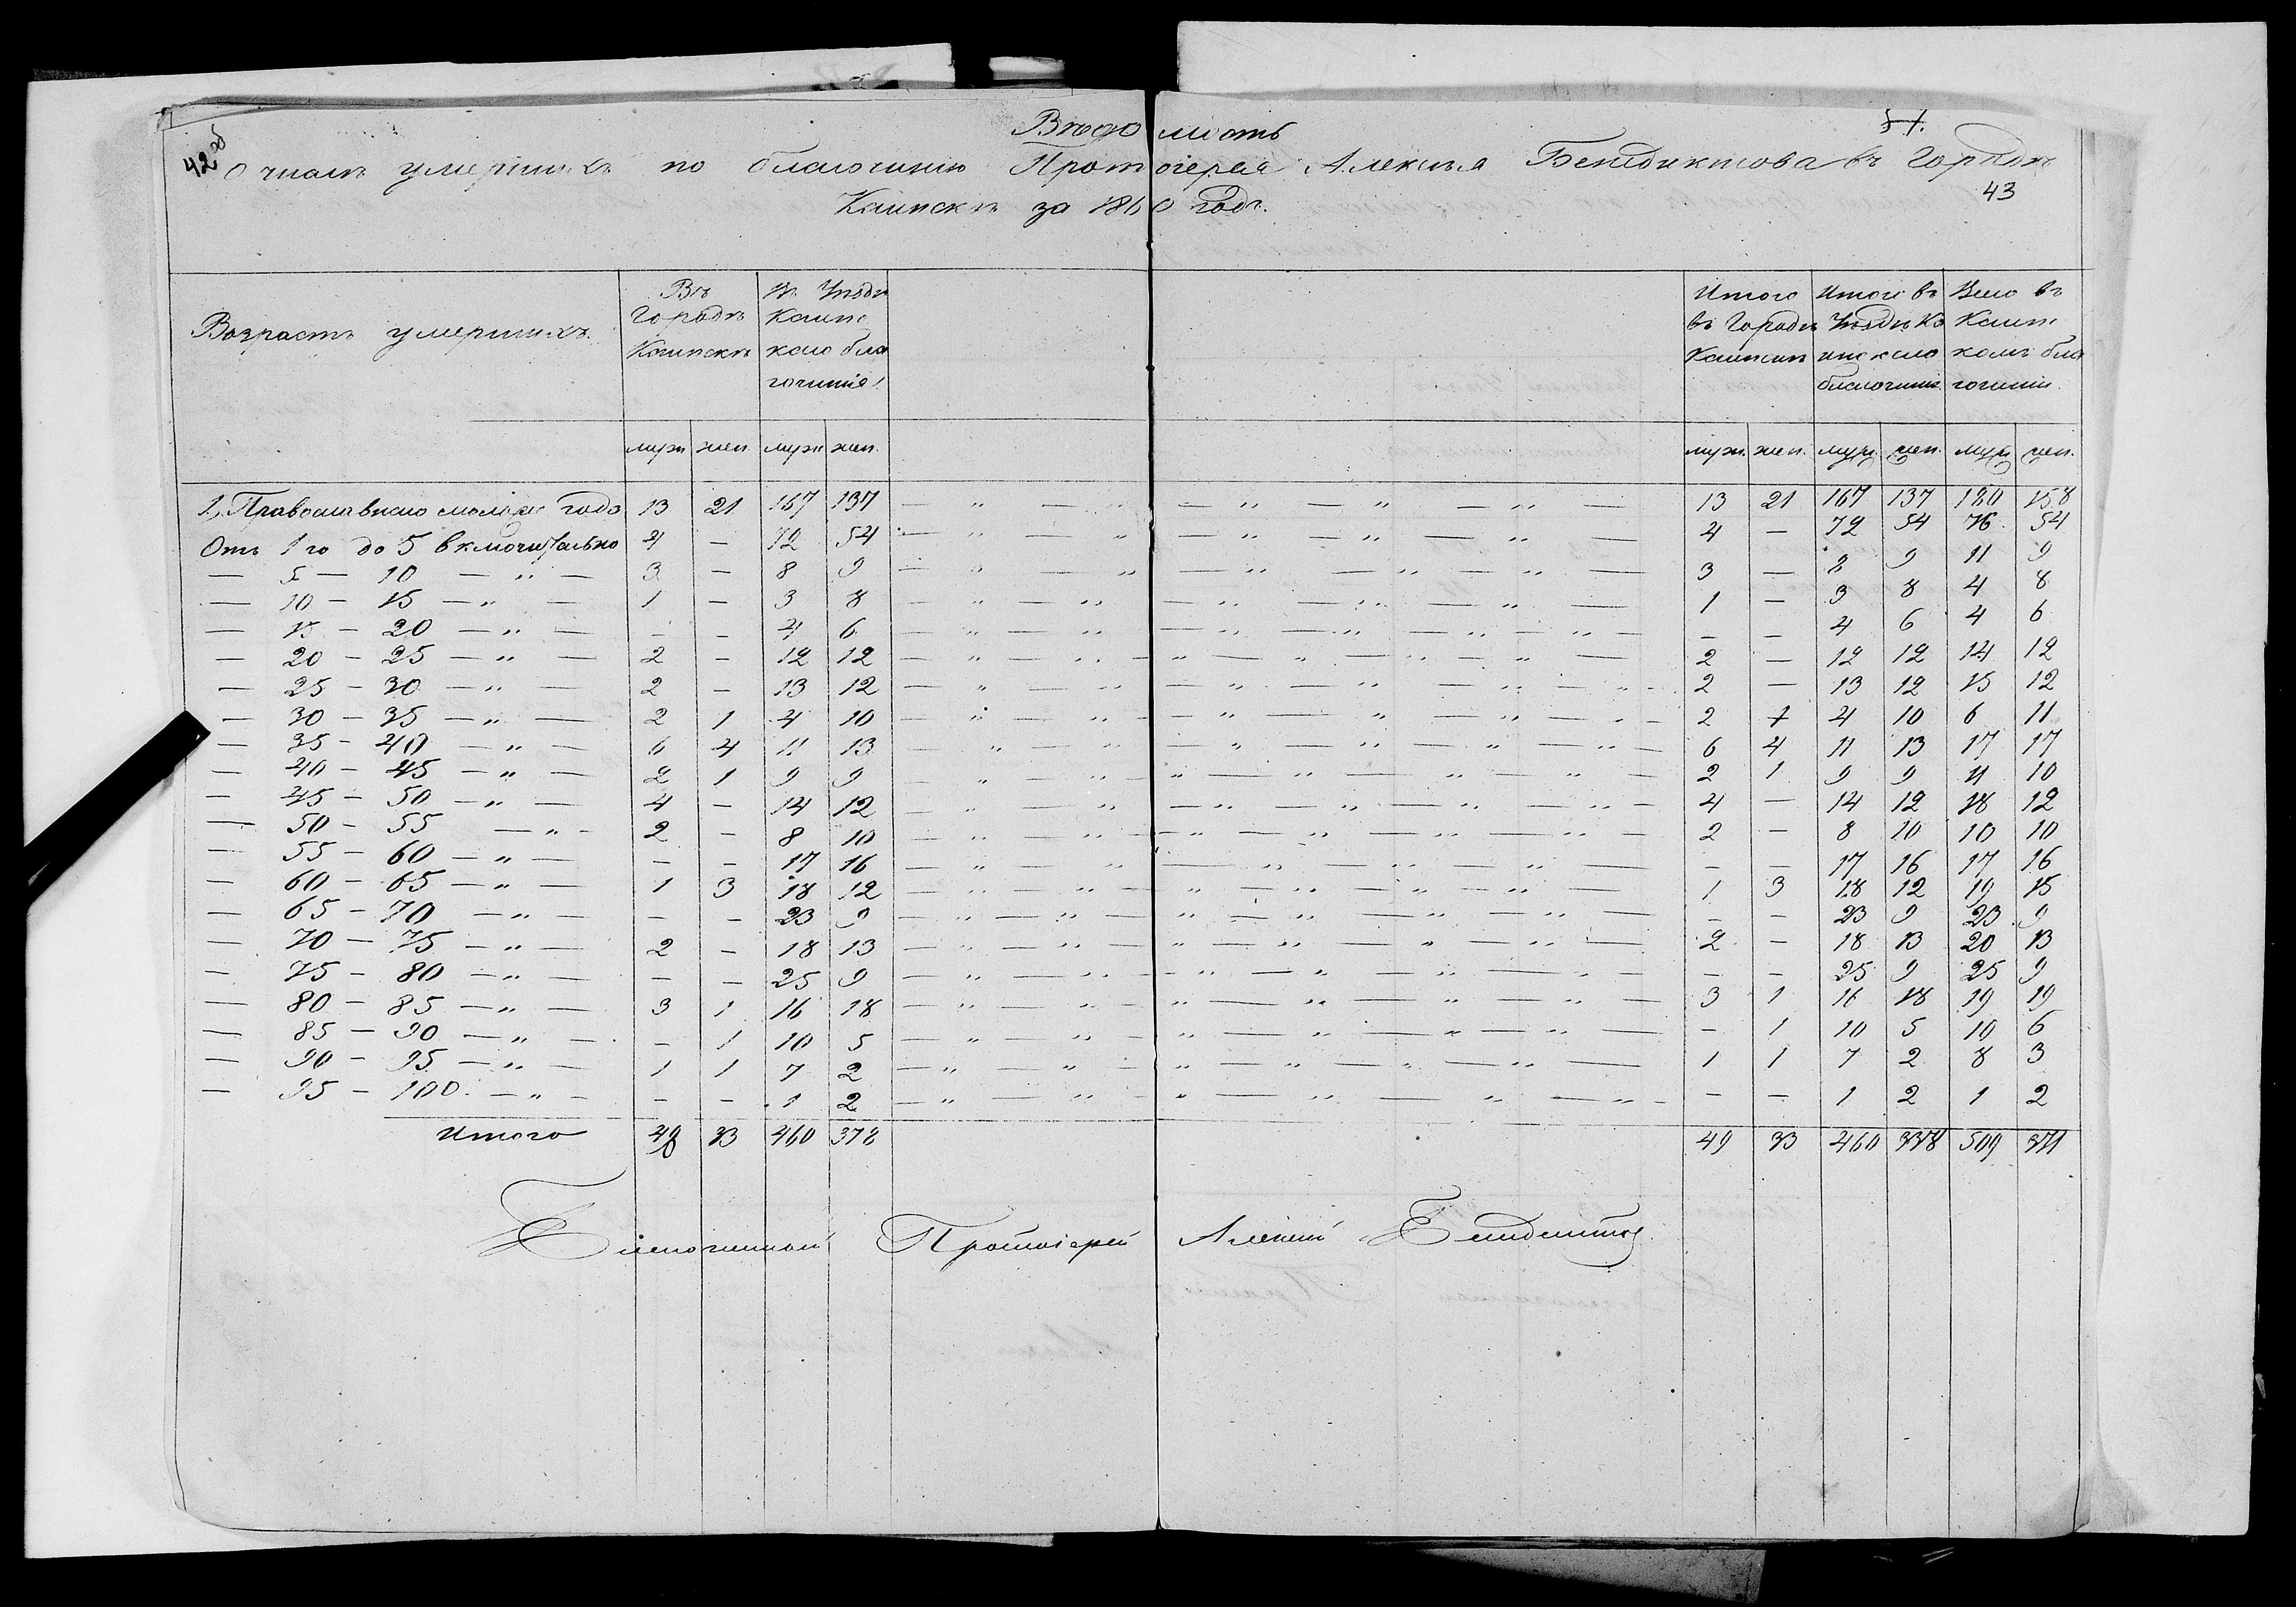 Вѣдомость
42 об
51.
О числѣ умершихъ по благочинію Протоіерея Алексѣя Бенедиктова въ Городѣ
43
Каинскѣ за 1860 годъ.
Возрастъ умершихъ.
Въ Городѣ Каинскѣ
Въ Уѣздѣ Каинскаго благочинія
Итого въ Городѣ Каинскѣ
Итого въ Уѣздѣ Каинскаго благочинія
Всего въ Каинскомъ благочиніи
муж жен муж жен муж. жен. муж жен. муж жен.
1, Православнаго моложе года 13 21 167 137 — „ — „ — 13 21 167 137 180 158
Отъ 1го до 5 включительно 4 — 72 54 — „ — „ — 4 — 72 54 76 54
— 5 — 10 — „ — 3 — 8 9 — „ — „ — 3 — 8 9 11 9
— 10 — 15 — „ — 1 — 3 8 — „ — „ — 1 — 3 8 4 8
— 15 — 20 — „ — — — 4 6 — „ — „ — — — 4 6 4 6
— 20 — 25 — „ — 2 — 12 12 — „ — „ — 2 — 12 12 14 12
— 25 — 30 — „ — 2 — 13 12 — „ — „ — 2 — 13 12 15 12
— 30 — 35 — „ — 2 1 4 10 — „ — „ — 2 1 4 10 6 11
— 35 — 40 — „ — 6 4 11 13 — „ — „ — 6 4 11 13 17 17
— 40 — 45 — „ — 2 1 9 9 — „ — „ — 2 1 9 9 11 10
— 45 — 50 — „ — 4 — 14 12 — „ — „ — 4 — 14 12 18 12
— 50 — 55 — „ — 2 — 8 10 — „ — „ — 2 — 8 10 10 10
— 55 — 60 — „ — — — 17 16 — „ — „ — — — 17 16 17 16
— 60 — 65 — „ — 1 3 18 12 — „ — „ — 1 3 18 12 19 15
— 65 — 70 — „ — — — 23 9 — „ — „ — — — 23 9 23 9
— 70 — 75 — „ — 2 — 18 13 — „ — „ — 2 — 18 13 20 13
— 75 — 80 — „ — — — 25 9 — „ — „ — — — 25 9 25 9
— 80 — 85 — „ — 3 1 16 18 — „ — „ — 3 1 16 18 19 19
— 85 — 90 — „ — — 1 10 5 — „ — „ — — 1 10 5 10 6
— 90 — 95 — „ — 1 1 7 2 — „ — „ — 1 1 7 2 8 3
— 95 — 100. — „ — — — 1 2 — „ — „ — — — 1 2 1 2
Итого 49 33 460 378 49 33 460 338 509 371
Благочинный Протоіерей Алексѣй Бенедиктовъ